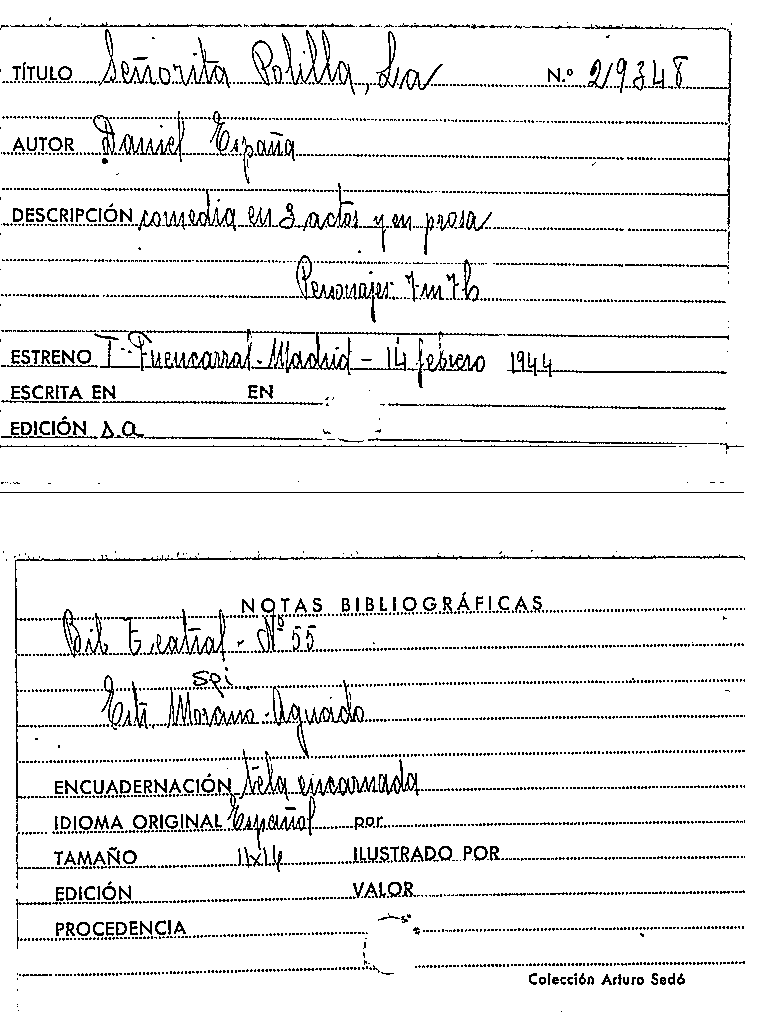 TÍTULO Señorita Polilla, La N.º 29348
AUTOR Daniel España
DESCRIPCIÓN comedia en 3 actos y en prosa
Personajes 7m 7h
ESTRENO Tº Fuencarral - Madrid - 14 febrero 1944
ESCRITA EN EN
EDICIÓN s.a
NOTAS BIBLIOGRÁFICAS
Bib Teatral - Nº 55
spi
Edit. Morano - Aguado
ENCUADERNACIÓN tela encarnada
IDIOMA ORIGINAL Español por
TAMAÑO 11x16 ILUSTRADO POR
EDICIÓN VALOR
PROCEDENCIA
Colección Arturo Sedó